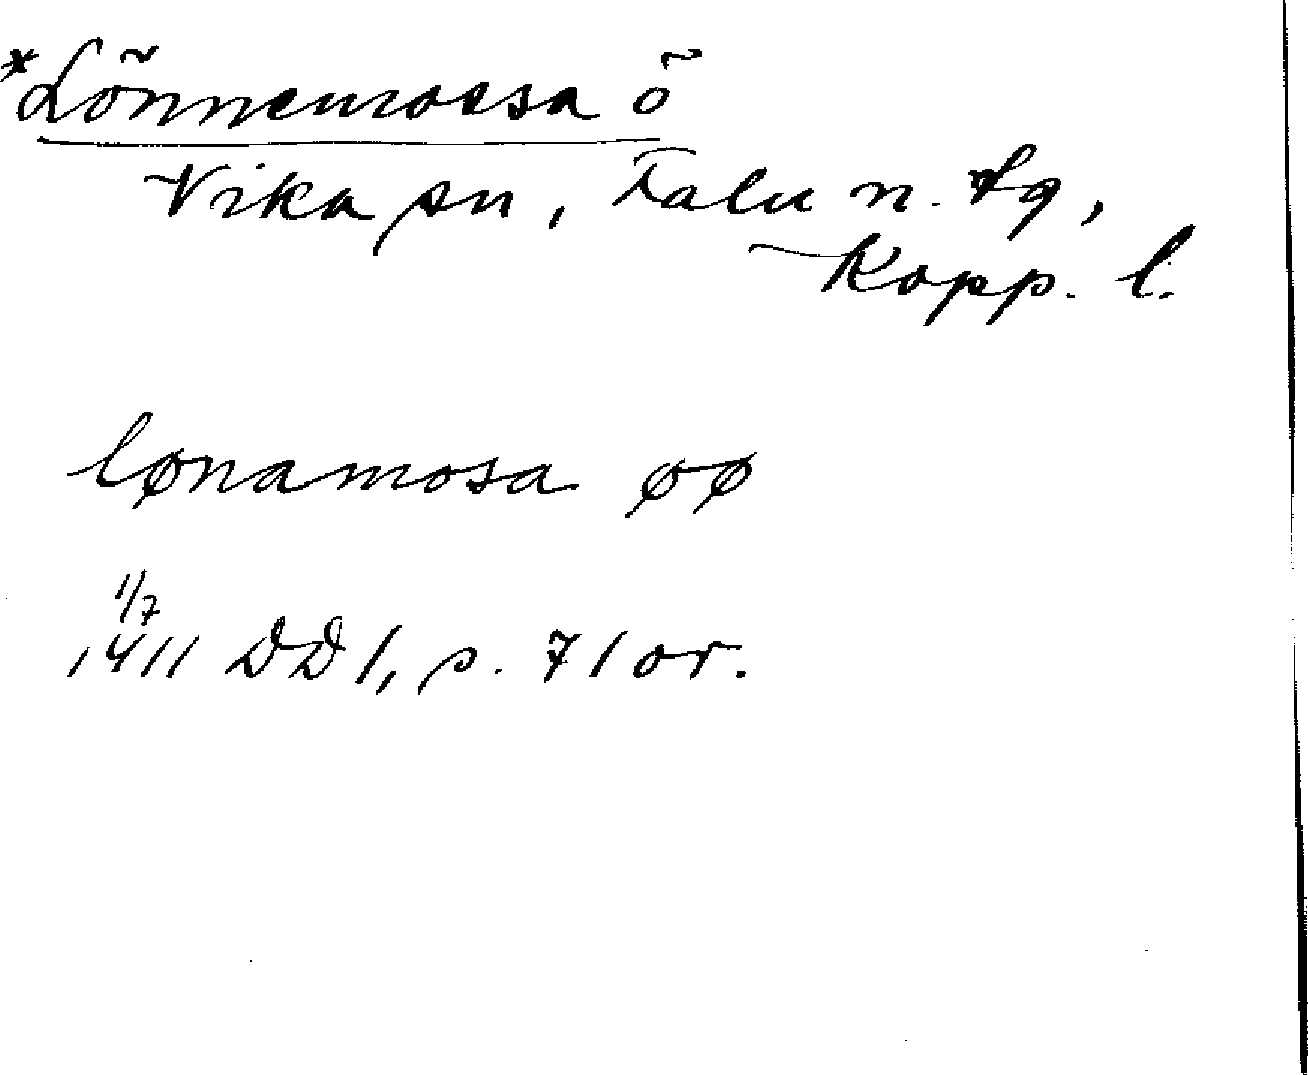 *Lönnemossa ö
Vika sn, Falu n. tg,
Kopp. l.
lønamosa øø
1/7
1411 DD 1, s. 71 or.